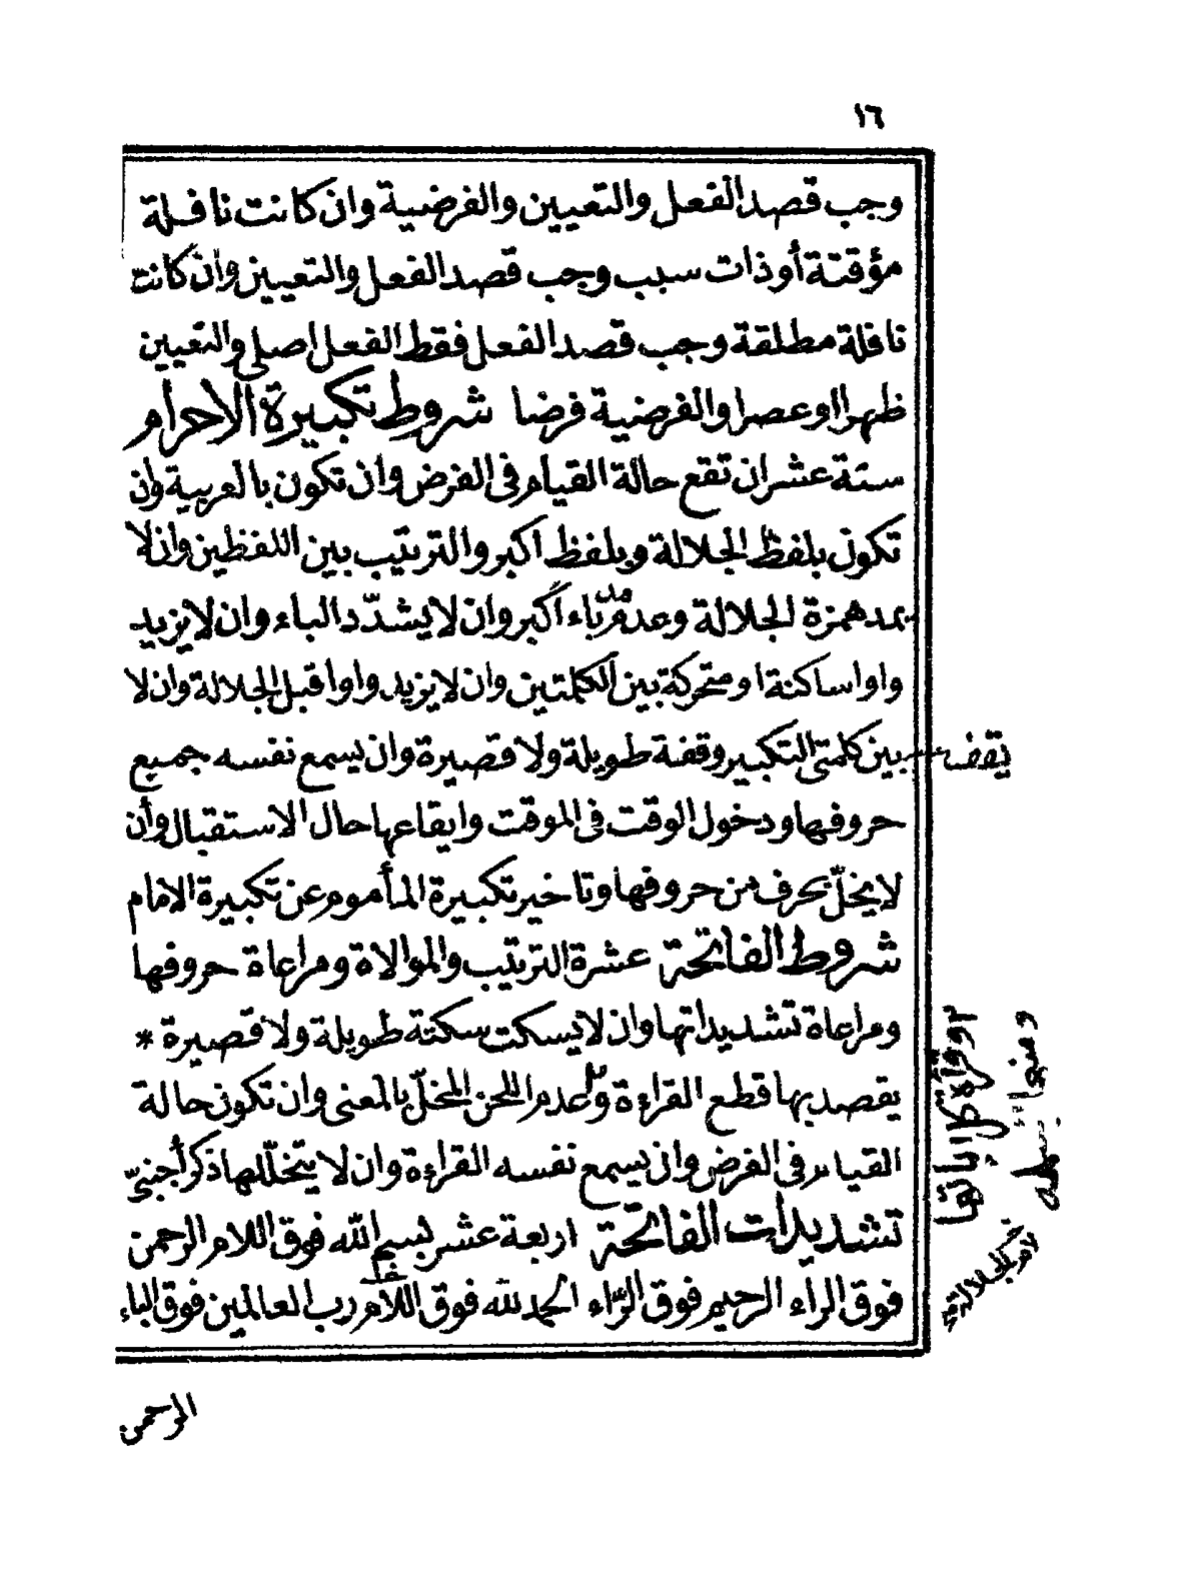 ١٦
وجب قصد الفعل والتعيين والفرضية وان كانت نافلة
مؤقتة أو ذات سبب وجب قصد الفعل والتعيين وان كانت
نافلة مطلقة وجب قصد الفعل فقط الفعل اصلي والتعيين
ظهرا او عصرا والفرضية فرضا شروط تكبيرة الاحرام
ستة عشر ان تقع حالة القيام في الفرض وان تكون بالعربية وان
تكون بلفظ الجلالة وبلفظ اكبر والترتيب بين اللفظين وان لا
يمد همزة الجلالة وعدم مد باء أكبر وان لا يشدّد الباء وان لا يزيد
واوا ساكنة او متحركة بين الكلمتين وان لا يزيد واوا قبل الجلالة وان لا
يقف بين كلمتي التكبير وقفة طويلة ولا قصيرة وان يسمع نفسه جميع
حروفها ودخول الوقت في الموقت وايقاعها حال الاستقبال وأن
لا يخلّ بحرف من حروفها وتاخير تكبيرة المأموم عن تكبيرة الامام
شروط الفاتحة عشرة الترتيب والموالاة ومراعاة حروفها
ومراعاة تشديداتها وان لا يسكت سكتة طويلة ولا قصيرة *
يقصد بها قطع القراءة وعدم اللحن المخلّ بالمعنى وان تكون حالة
القيام في الفرض وان يسمع نفسه القراءة وان لا يتخلّلها ذكر أجنبيّ
تشديدات الفاتحة اربعة عشر بسم الله فوق اللام الرحمن
فوق الراء الرحيم فوق الرّاء الحمد لله فوق اللام رب العالمين فوق الباء
وقرأة كل اياتها
ومنها بسملة
الرحمن